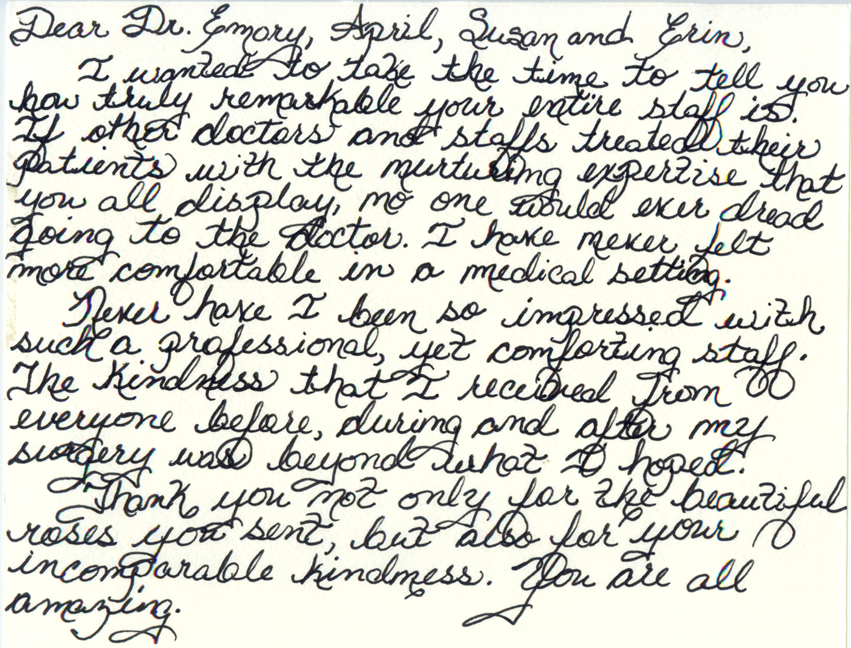 Dear Dr. Emory, April, Susan and Erin,
I wanted to take the time to tell you
how truly remarkable your entire staff is.
If other doctors and staffs treated their
patients with the nurturing expertise that
you all display, no one would ever dread
going to the doctor. I have never felt
more comfortable in a medical setting.
Never have I been so impressed with
such a professional, yet comforting staff.
The kindness that I received from
everyone before, during and after my
surgery was beyond what I hoped.
Thank you not only for the beautiful
roses you sent, but also for your
incomparable kindness. You are all
amazing.